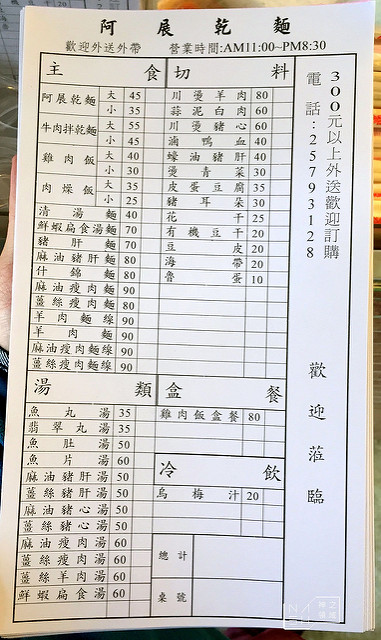 阿展乾麵
歡迎外送外帶 營業時間:AM11:00~PM8:30
主食
阿展乾麵 大 45
小 35
牛肉拌乾麵 大 55
小 45
雞肉飯 大 40
小 30
肉燥飯 大 35
小 25
清湯麵 40
鮮蝦扁食湯麵 70
豬肝麵 70
麻油豬肝麵 80
什錦麵 80
麻油瘦肉麵 90
薑絲瘦肉麵 90
羊肉麵線 90
羊肉麵 90
麻油瘦肉麵線 90
薑絲瘦肉麵線 90
切料
川燙羊肉 80
蒜泥白肉 60
川燙豬心 60
滷鴨血 40
蠔油豬肝 40
燙青菜 30
皮蛋豆腐 35
豬耳朵 30
花干 25
有機豆干 20
豆皮 20
海帶 20
魯蛋 10
湯類
魚丸湯 35
翡翠丸湯 35
魚肚湯 50
魚片湯 60
麻油豬肝湯 50
薑絲豬肝湯 50
麻油豬心湯 50
薑絲豬心湯 50
麻油瘦肉湯 60
薑絲瘦肉湯 60
薑絲羊肉湯 60
鮮蝦扁食湯 60
盒餐
雞肉飯盒餐 80
冷飲
烏梅汁 20
總計
桌號
300元以上外送歡迎訂購
電話:25793128
歡迎蒞臨